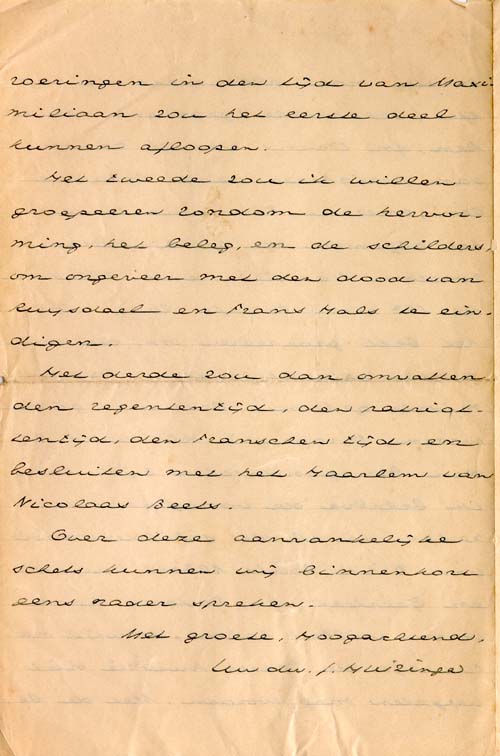 roeringen in den tijd van Maxi-
miliaan zou het eerste deel
kunnen afloopen.
Het tweede zou ik willen
groepeeren rondom de hervor-
ming, het beleg, en de schilders,
om ongeveer met den dood van
Ruysdael en Frans Hals te ein-
digen.
Het derde zou dan omvatten
den regententijd, den patriot-
tentijd, den Franschen tijd, en
besluiten met het Haarlem van
Nicolaas Beets.
Over deze aanvankelijke
schets kunnen wij binnenkort
eens nader spreken.
Met groete, Hoogachtend,
Uw dw. J. Huizinga